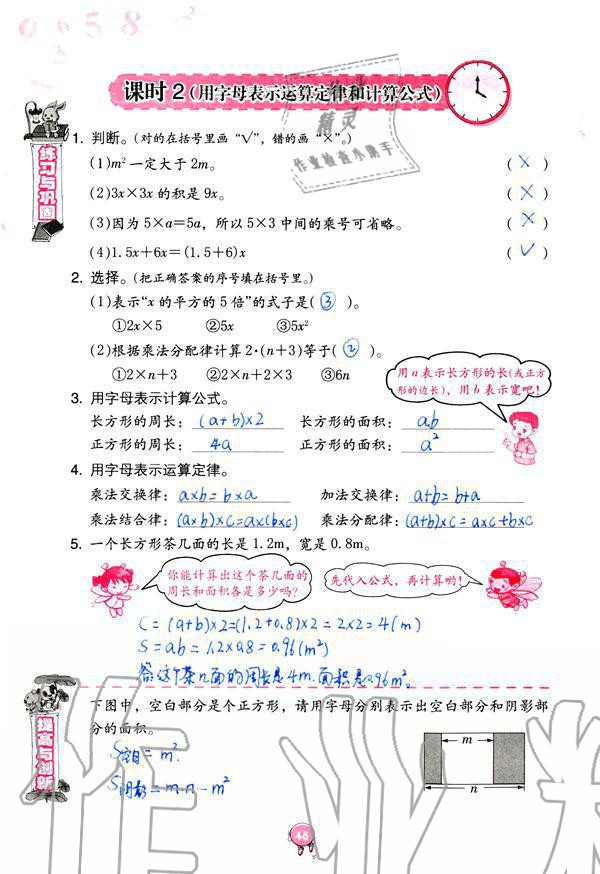 9 6 5 8 2
3
1
课时2(用字母表示运算定律和计算公式)
精灵
作业检查小助手
练习与巩固
1. 判断。(对的在括号里画“√”,错的画“×”。)
(1)m²一定大于2m。 (×)
(2)3x×3x的积是9x。 (×)
(3)因为5×a=5a,所以5×3中间的乘号可省略。 (×)
(4)1.5x+6x=(1.5+6)x (√)
2. 选择。(把正确答案的序号填在括号里。)
(1)表示“x的平方的5倍”的式子是(③)。
①2x×5 ②5x ③5x²
(2)根据乘法分配律计算2·(n+3)等于(②)。
①2×n+3 ②2×n+2×3 ③6n
用a表示长方形的长(或正方形的边长),用b表示宽吧!
3. 用字母表示计算公式。
长方形的周长:(a+b)×2 长方形的面积:ab
正方形的周长:4a 正方形的面积:a²
4. 用字母表示运算定律。
乘法交换律:a×b=b×a 加法交换律:a+b=b+a
乘法结合律:(a×b)×c=a×(b×c) 乘法分配律:(a+b)×c=a×c+b×c
5. 一个长方形茶几面的长是1.2m,宽是0.8m。
你能计算出这个茶几面的
周长和面积各是多少吗?
先代入公式,再计算哟!
C=(a+b)×2=(1.2+0.8)×2=2×2=4(m)
S=ab=1.2×0.8=0.96(m²)
答:这个茶几面的周长是4m.面积是0.96m².
提高与创新
下图中,空白部分是个正方形,请用字母分别表示出空白部分和阴影部
分的面积。
S空白=m².
S阴影=m·n-m²
m
n
48
作业